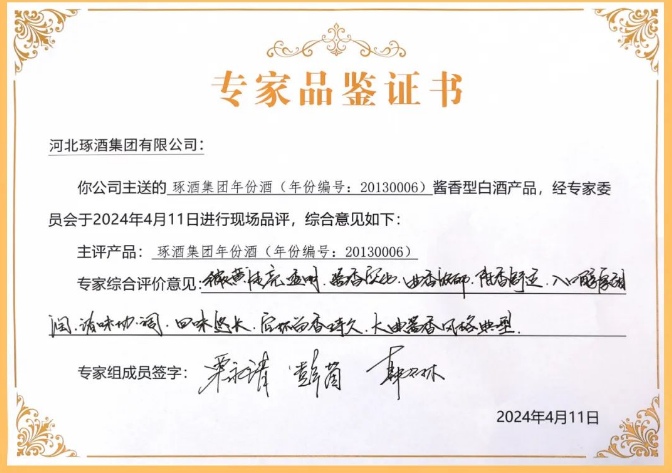 专家品鉴证书
河北琢酒集团有限公司：
你公司主送的 琢酒集团年份酒（年份编号：20130006）酱香型白酒产品，经专家委
员会于2024年4月11日进行现场品评，综合意见如下：
主评产品： 琢酒集团年份酒（年份编号：20130006）
专家综合评价意见：微黄清亮透明、酱香突出、曲香, 陈香舒适、入口醇厚
润、诸味协调、回味悠长、空杯留香持久、大曲酱香风格典型.
专家组成员签字：
2024年4月11日